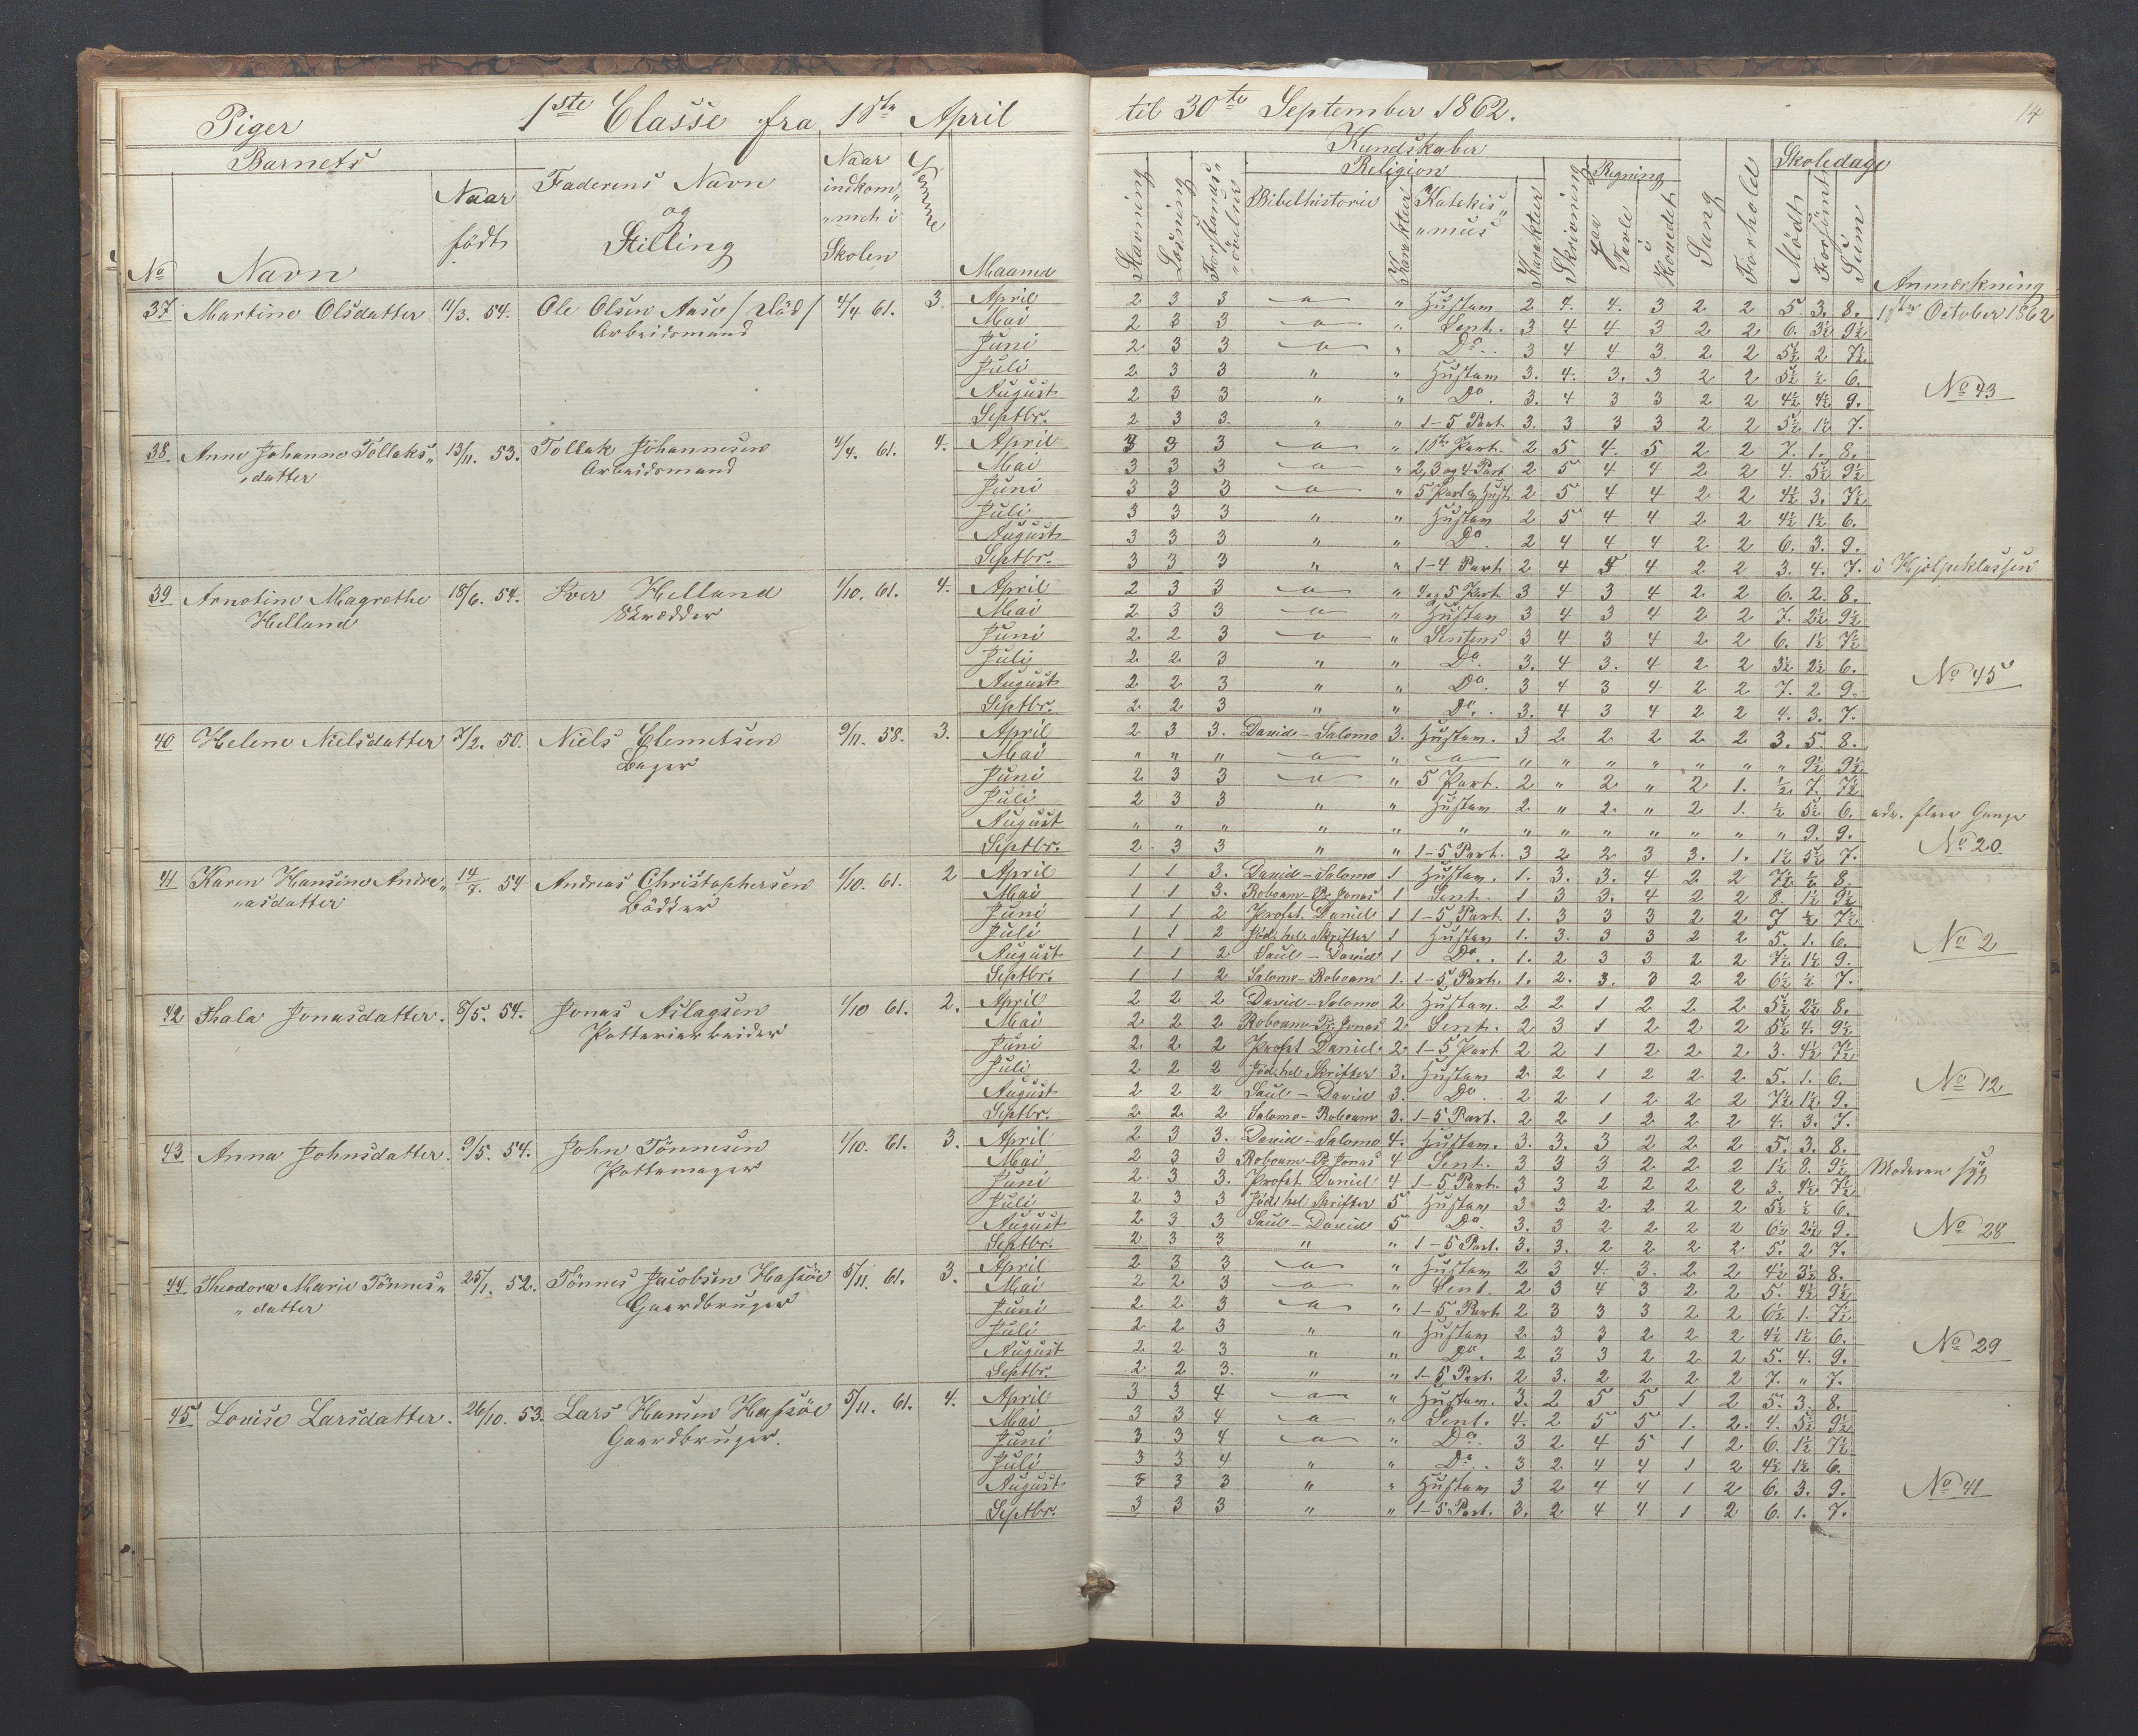 Piger 1ste Classe fra 1ste April til 30te September 1862. 14
Barnets Faderens Navn og Stilling Naar indkom„ „met i Skolen Nemme Maaned
No Navn Naar født
Kundskaber Skoledage
Stavning Læsning Forstands„ „övelse Religion Skrivning Regning Sang Forhold Mödt Forsömt Sum Anmærkning
Bibelhistorie Karakter Katekis„ „mus Karakter paa Tavle i Hovedet
37 Martine Olsdatter 11/3. 54. Ole Olsen Aase /död/ 4/4 61. 3 April 2 3 3 „ Hustavn 2 4. 4. 3 2 2 5. 3. 8. 1ste October 1862
Arbeidsmand Mai 2 3 3 „ Sent. 3 4 4 3 2 2 6. 3½ 9½
Juni 2 3 3 „ Do. 3 4 4 3 2 2 5½ 2 7½
Juli 2 3 3 „ „ Hustavn 3. 4. 3. 3 2 2 5½ ½ 6.
August 2 3 3 „ „ Do. 3. 4 3 3 2 2 4½ 4½ 9. No 43
Septbr. 2 3 3. „ „ 1-5 Part 3. 3 3 3 2 2 5½ 1½ 7.
38 Anne Johanne Tollaks„ 13/11. 53. Tollak Johannesen 4/4. 61. 4. April 3 3 3 „ 1ste Part. 2 5 4. 5 2 2 7. 1. 8.
„datter Arbeidsmand Mai 3 3 3 „ 2, 3 og 4 Part 2 5 4 4 2 2 4. 5½ 9½
Juni 3 3 3 „ 5 Part og Hust. 2 5 4 4 2 2 4½ 3. 7½
Juli 3 3 3 „ „ Hustavn 2 5 4 4 2 2 4½ 1½ 6.
August 3 3 3 „ „ Do. 2 4 4 4 2 2 6. 3. 9.
Septbr. 3 3 3 „ „ 1-4 Part 2 4 4 2 2 3. 4. 7. i Hjelpeklassen
39 Arnotine Magrethe 18/6. 54. Iver Helland 1/10. 61. 4. April 2 3 3 „ 4 og 5 Part 3 4 3 4 2 2 6. 2. 8.
Helland Skrædder Mai 2 3 3 „ Hustavn 3 4 3 4 2 2 7. 2½ 9½
Juni 2 2 3 „ Sentens 3 4 3 4 2 2 6. 1½ 7½
Juli 2 2 3 „ „ Do. 3. 4 3. 4 2 2 3½ 2½ 6.
August 2 2 3 „ „ Do. 3 4 3 4 2 2 7. 2. 9. No 45
Septbr. 2 2 3 „ „ Do. 3. 4 3 4 2 2 4. 3. 7.
40 Helene Nielsdatter 7/2. 50. Niels Clemetsen 9/11. 58. 3. April 2 3 3. David-Salomo 3. Hustavn. 3 2 2 2 2 2 3. 5. 8.
Bager Mai „ „ „ „ „ „ „ „ „ „ 9½ 9½
Juni 2 3 3 „ 5 Part. 2 „ 2 „ 2 1. ½ 7. 7½
Juli 2 3 3 „ „ Hustavn 2 „ 2. „ 2 1. ½ 5½ 6. adv. flere Gange
August „ „ „ „ „ „ „ „ „ „ „ „ „ 9. 9.
Septbr. 2 3 3 „ „ 1-5 Part. 3 2 2 3 3. 1. 1½ 5½ 7. No 20
41 Karen Hansine Andre„ 14/7. 54 Andreas Christophersen 1/10. 61. 2 April 1 1 3. David-Salomo 1 Hustavn. 1. 3. 3. 4 2 2 7½ ½ 8.
„asdatter Bödker Mai 1 1 3. Roboam-Pr. Jonas 1 Sent. 1 3 3. 4 2 2 8. 1½ 9½
Juni 1 1 2 Profet. Daniel 1 1-5 Part. 1. 3 3 3 2 2 7 ½ 7½
Juli 1 1 2 Jöd. hel. Skrifter 1 Hustavn 1. 3. 3 3 2 2 5. 1. 6.
August 1 1 2 Saul-David 1 Do. 1. 2 3 3 2 2 7½ 1½ 9. No 2
Septbr. 1 1 2 Salomo-Roboam 1. 1-5 Part. 1. 2. 3. 3 2 2 6½ ½ 7.
42 Thala Jonasdatter. 8/5. 54. Jonas Aslagsen 1/10 61. 2. April 2 2 2 David-Salomo 2 Hustavn. 2 2 1 2 2 2 5½ 2½ 8.
Potteriarbeider Mai 2 2 2 Roboam-Pr. Jonas 2 Sent. 2 3 1 2 2 2 5½ 4. 9½
Juni 2 2 2 Profet Daniel. 2 1-5 Part 2 2 1 2 2 2 3. 4½ 7½
Juli 2 2 2 Jöd. hel. Skrifter 3. Hustavn 2 2 1 2 2 2 5. 1. 6.
August 2 2 2 Saul-David 3. Do. 2 2 1 2 2 2 7½ 1½ 9. No 12
Septbr. 2 2 2 Salomo-Roboam 3. 1-5 Part. 2 2 1 2 2 2 4. 3. 7.
43 Anna Johnsdatter. 9/5. 54. John Tönnesen 1/10. 61. 3. April 2 3 3. David-Salomo 4. Hustavn. 3. 3. 3 2 2 2 5. 3. 8.
Pottemager Mai 2 3 3 Roboam-Pr. Jonas 4 Sent. 3 3 3 2 2 2 1½ 8. 9½ Moderen syg
Juni 2 3 3. Profet Daniel 4 1-5 Part. 3 3 2 2 2 2 3. 4½ 7½
Juli 2 3 3 Jöd. hel Skrifter 5 Hustavn 3 3 2 2 2 2 5½ ½ 6.
August 2 3 3 Saul-David 5 Do. 3. 3 2 2 2 2 6½ 2½ 9. No 28
Septbr. 2 3 3 „ „ 1-5 Part. 3. 3. 2 2 2 2 5. 2 7.
44 Theodora Marie Tönnes„ 25/1. 52. Tönnes Jacobsen Hafsöe 5/11. 61. 3. April 2 3 3 „ Hustavn 2 3 4. 3. 2 2 4½ 3½ 8.
„datter Gaardbruger Mai 2 2 3 „ Sent. 2 3 4 3 2 2 5. 4½ 9½
Juni 2 2 3 „ 1-5 Part. 2 3 3 3 2 2 6½ 1. 7½
Juli 2 2 3 „ „ Hustavn 2 3 3 2 2 2 4½ 1½ 6.
August 2 2 3 „ „ Do. 2 3 3 2 2 2 5. 4. 9. No 29
Septbr. 2 2 3. „ „ 1-5 Part. 2 3. 2 2 2 2 7. „ 7.
45 Lovise Larsdatter. 26/10. 53. Lars Hansen Hafsöe 5/11. 61. 4. April 3 3 4 „ Hustavn. 3. 2 5 5 1 2 5. 3. 8.
Gaardbruger. Mai 3 3 4 „ Sent. 4. 2 5 5 1. 2. 4. 5½ 9½
Juni 3 3 4 „ Do. 3 2 4 5 1 2 6. 1½ 7½
Juli 3 3 4 „ „ Do. 3 2 4 4 1 2 4½ 1½ 6.
August 3 3 3 „ „ Hustavn 3 2 4 4 1 2 6. 3. 9. No 41
Septbr. 3 3 3 „ „ 1-5 Part. 3. 2 4 4 1 2 6. 1. 7.